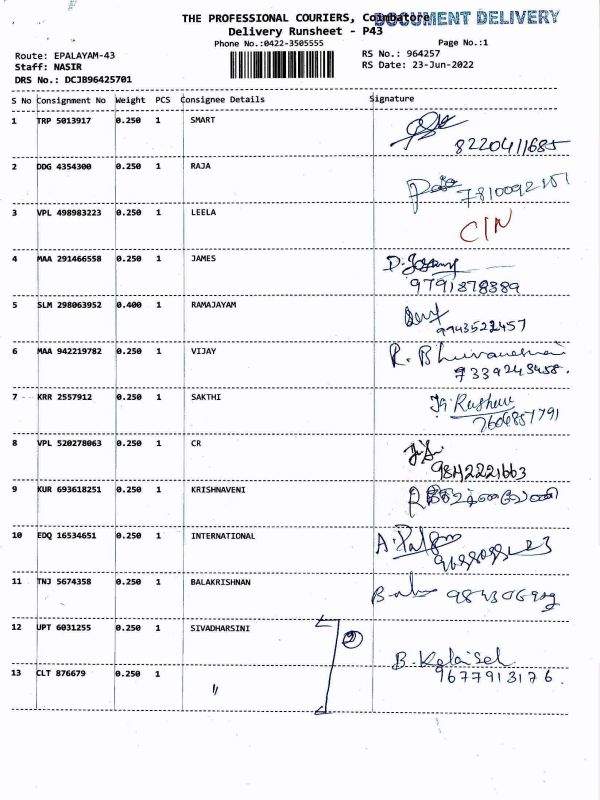 THE PROFESSIONAL COURIERS, Coimbatore
DOCUMENT DELIVERY
Delivery Runsheet - P43
Phone No.:0422-3505555
Page No.:1
Route: EPALAYAM-43
RS No.: 964257
Staff: NASIR
RS Date: 23-Jun-2022
DRS No.: DCJB96425701
S No Consignment No Weight PCS Consignee Details Signature
1 TRP 5013917 0.250 1 SMART
8220411685
2 DDG 4354300 0.250 1 RAJA
3 VPL 498983223 0.250 1 LEELA
C/N
4 MAA 291466558 0.250 1 JAMES
9791878889
5 SLM 298063952 0.400 1 RAMAJAYAM
9943522457
6 MAA 942219782 0.250 1 VIJAY
R. Bhuvaneshwari
9339248458.
7 KRR 2557912 0.250 1 SAKTHI
7604857791
8 VPL 520278063 0.250 1 CR
9842221663
9 KUR 693618251 0.250 1 KRISHNAVENI
10 EDQ 16534651 0.250 1 INTERNATIONAL
11 TNJ 5674358 0.250 1 BALAKRISHNAN
12 UPT 6031255 0.250 1 SIVADHARSINI
2
B. Kalaisel
13 CLT 876679 0.250 1 "
9677913176.